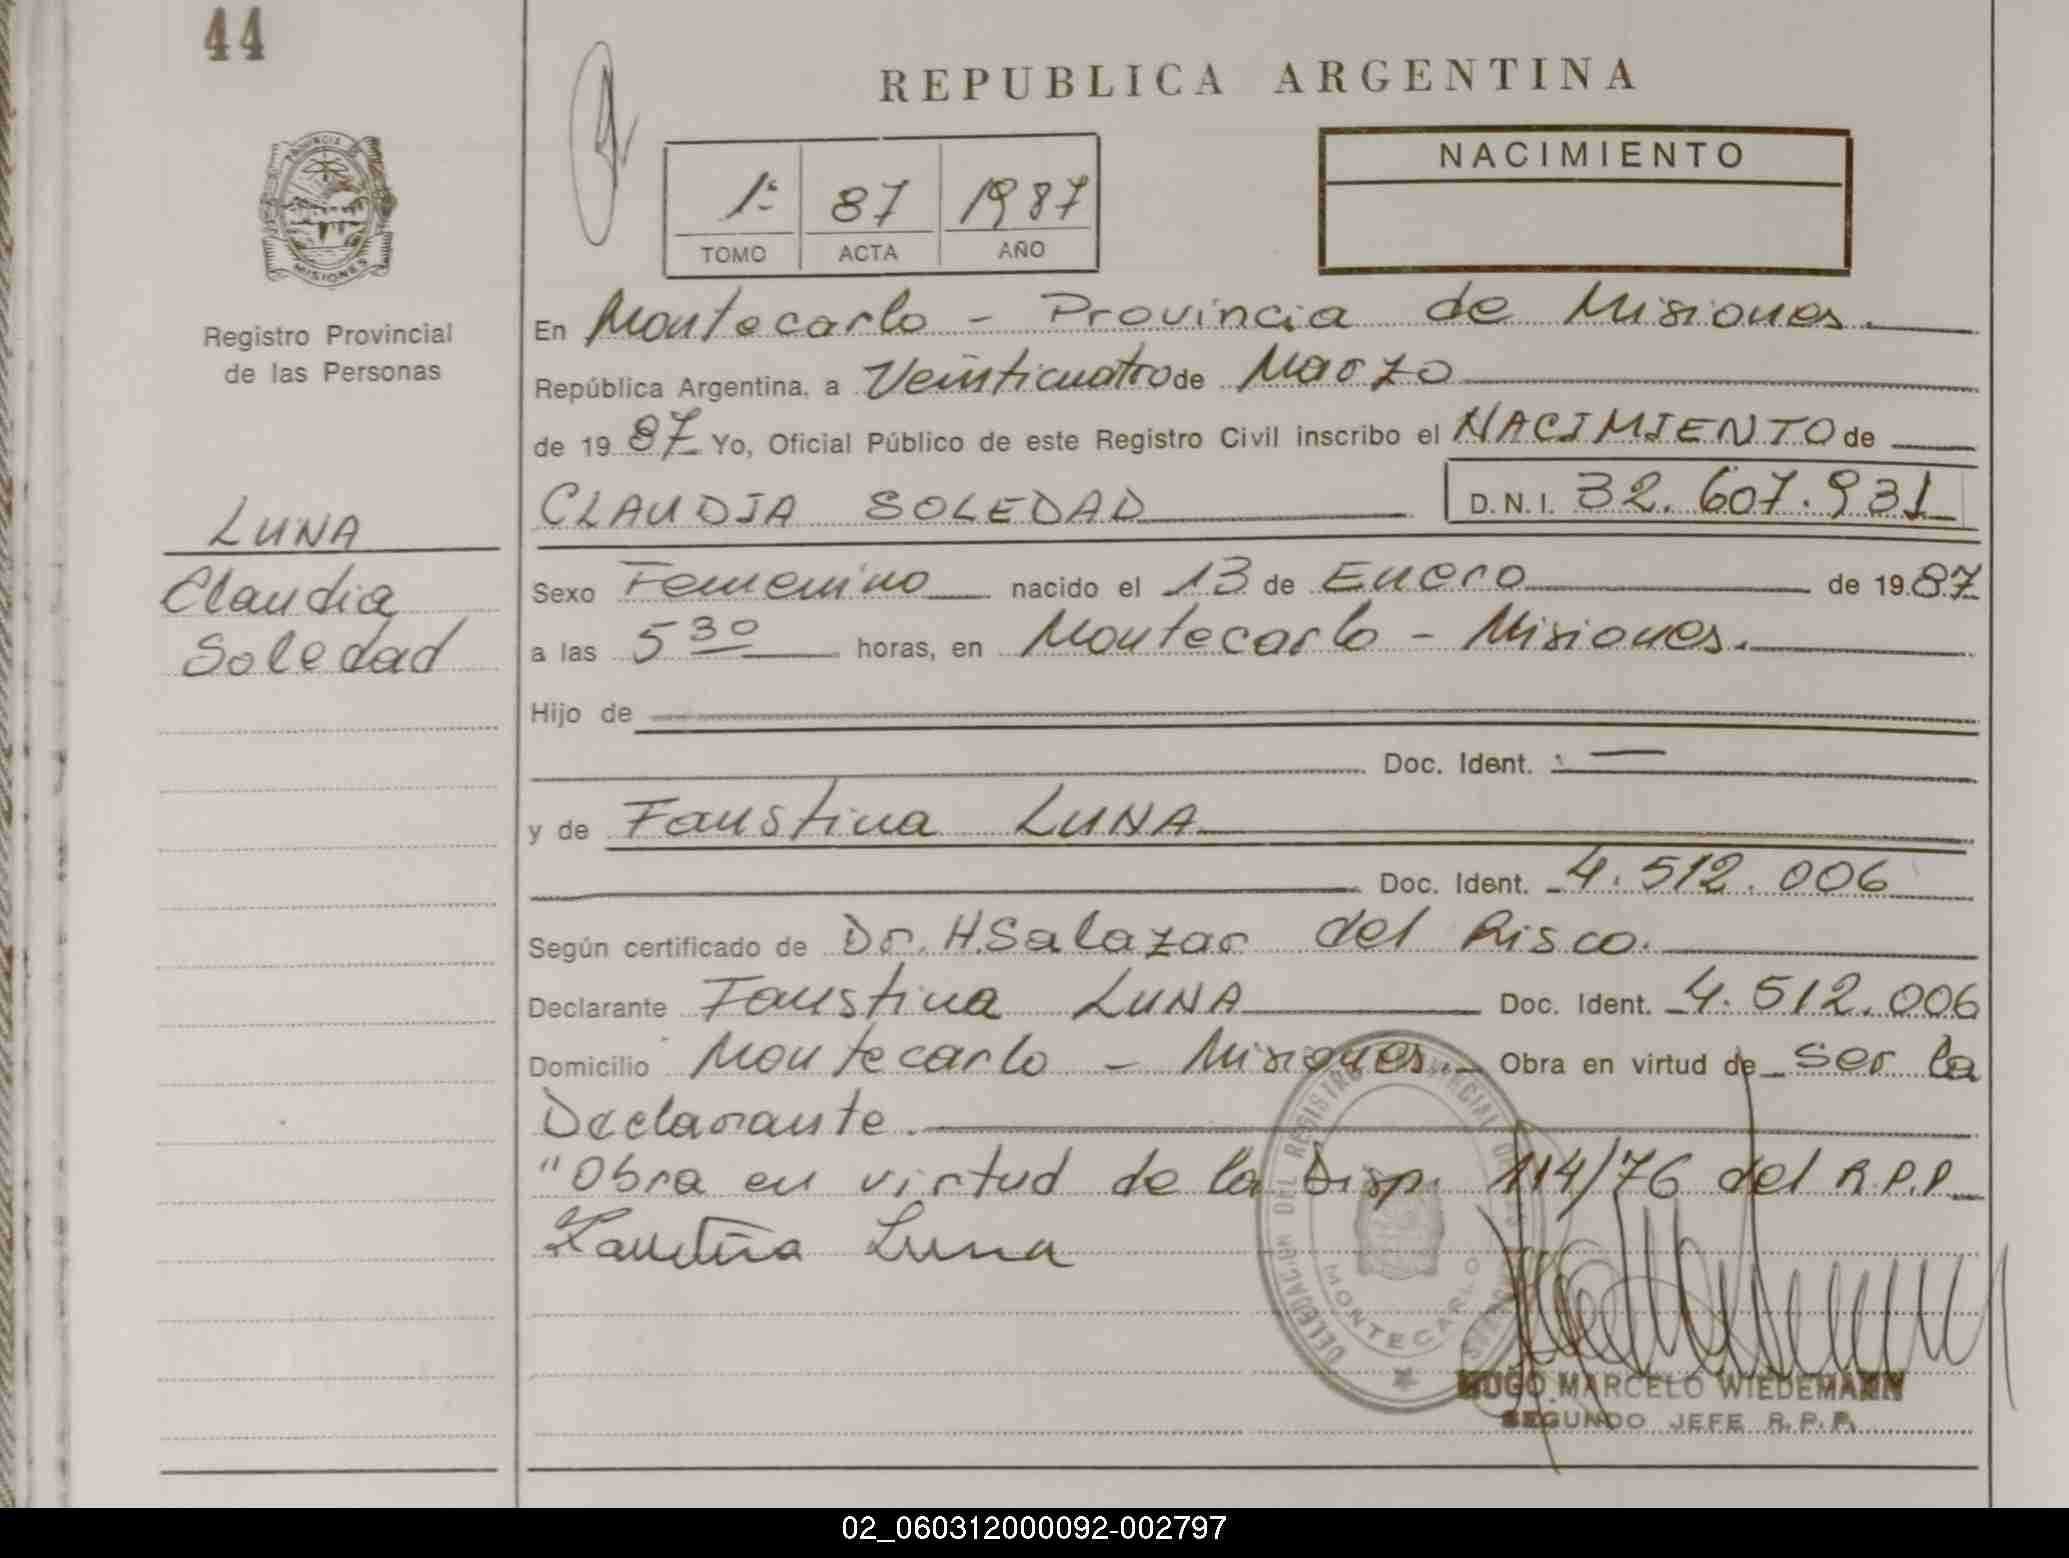 44
REPUBLICA ARGENTINA
PROVINCIA DE
MISIONES
Registro Provincial
de las Personas
1º 87 1987
TOMO ACTA AÑO
NACIMIENTO
En Montecarlo - Provincia de Misiones.
República Argentina, a Veinticuatro de Marzo
de 19 87 Yo, Oficial Público de este Registro Civil inscribo el NACIMIENTO de
CLAUDIA SOLEDAD D.N.I. 32.607.931
LUNA
Claudia
Soledad
Sexo Femenino nacido el 13 de Enero de 19 87
a las 5 30 horas, en Montecarlo - Misiones.
Hijo de
Doc. Ident. : —
y de Faustina LUNA
Doc. Ident. 4.512.006
Según certificado de Dr. H. Salazar del Risco.
Declarante Faustina LUNA Doc. Ident. 4.512.006
Domicilio Montecarlo - Misiones. Obra en virtud de ser la
Declarante.
"Obra en virtud de la Disp. 114/76 del R.P.P.
Faustina Luna
DELEGACION DEL REGISTRO PROVINCIAL DE LAS PERSONAS
MONTECARLO
HUGO MARCELO WIEDEMANN
SEGUNDO JEFE R.P.P.
02_060312000092-002797